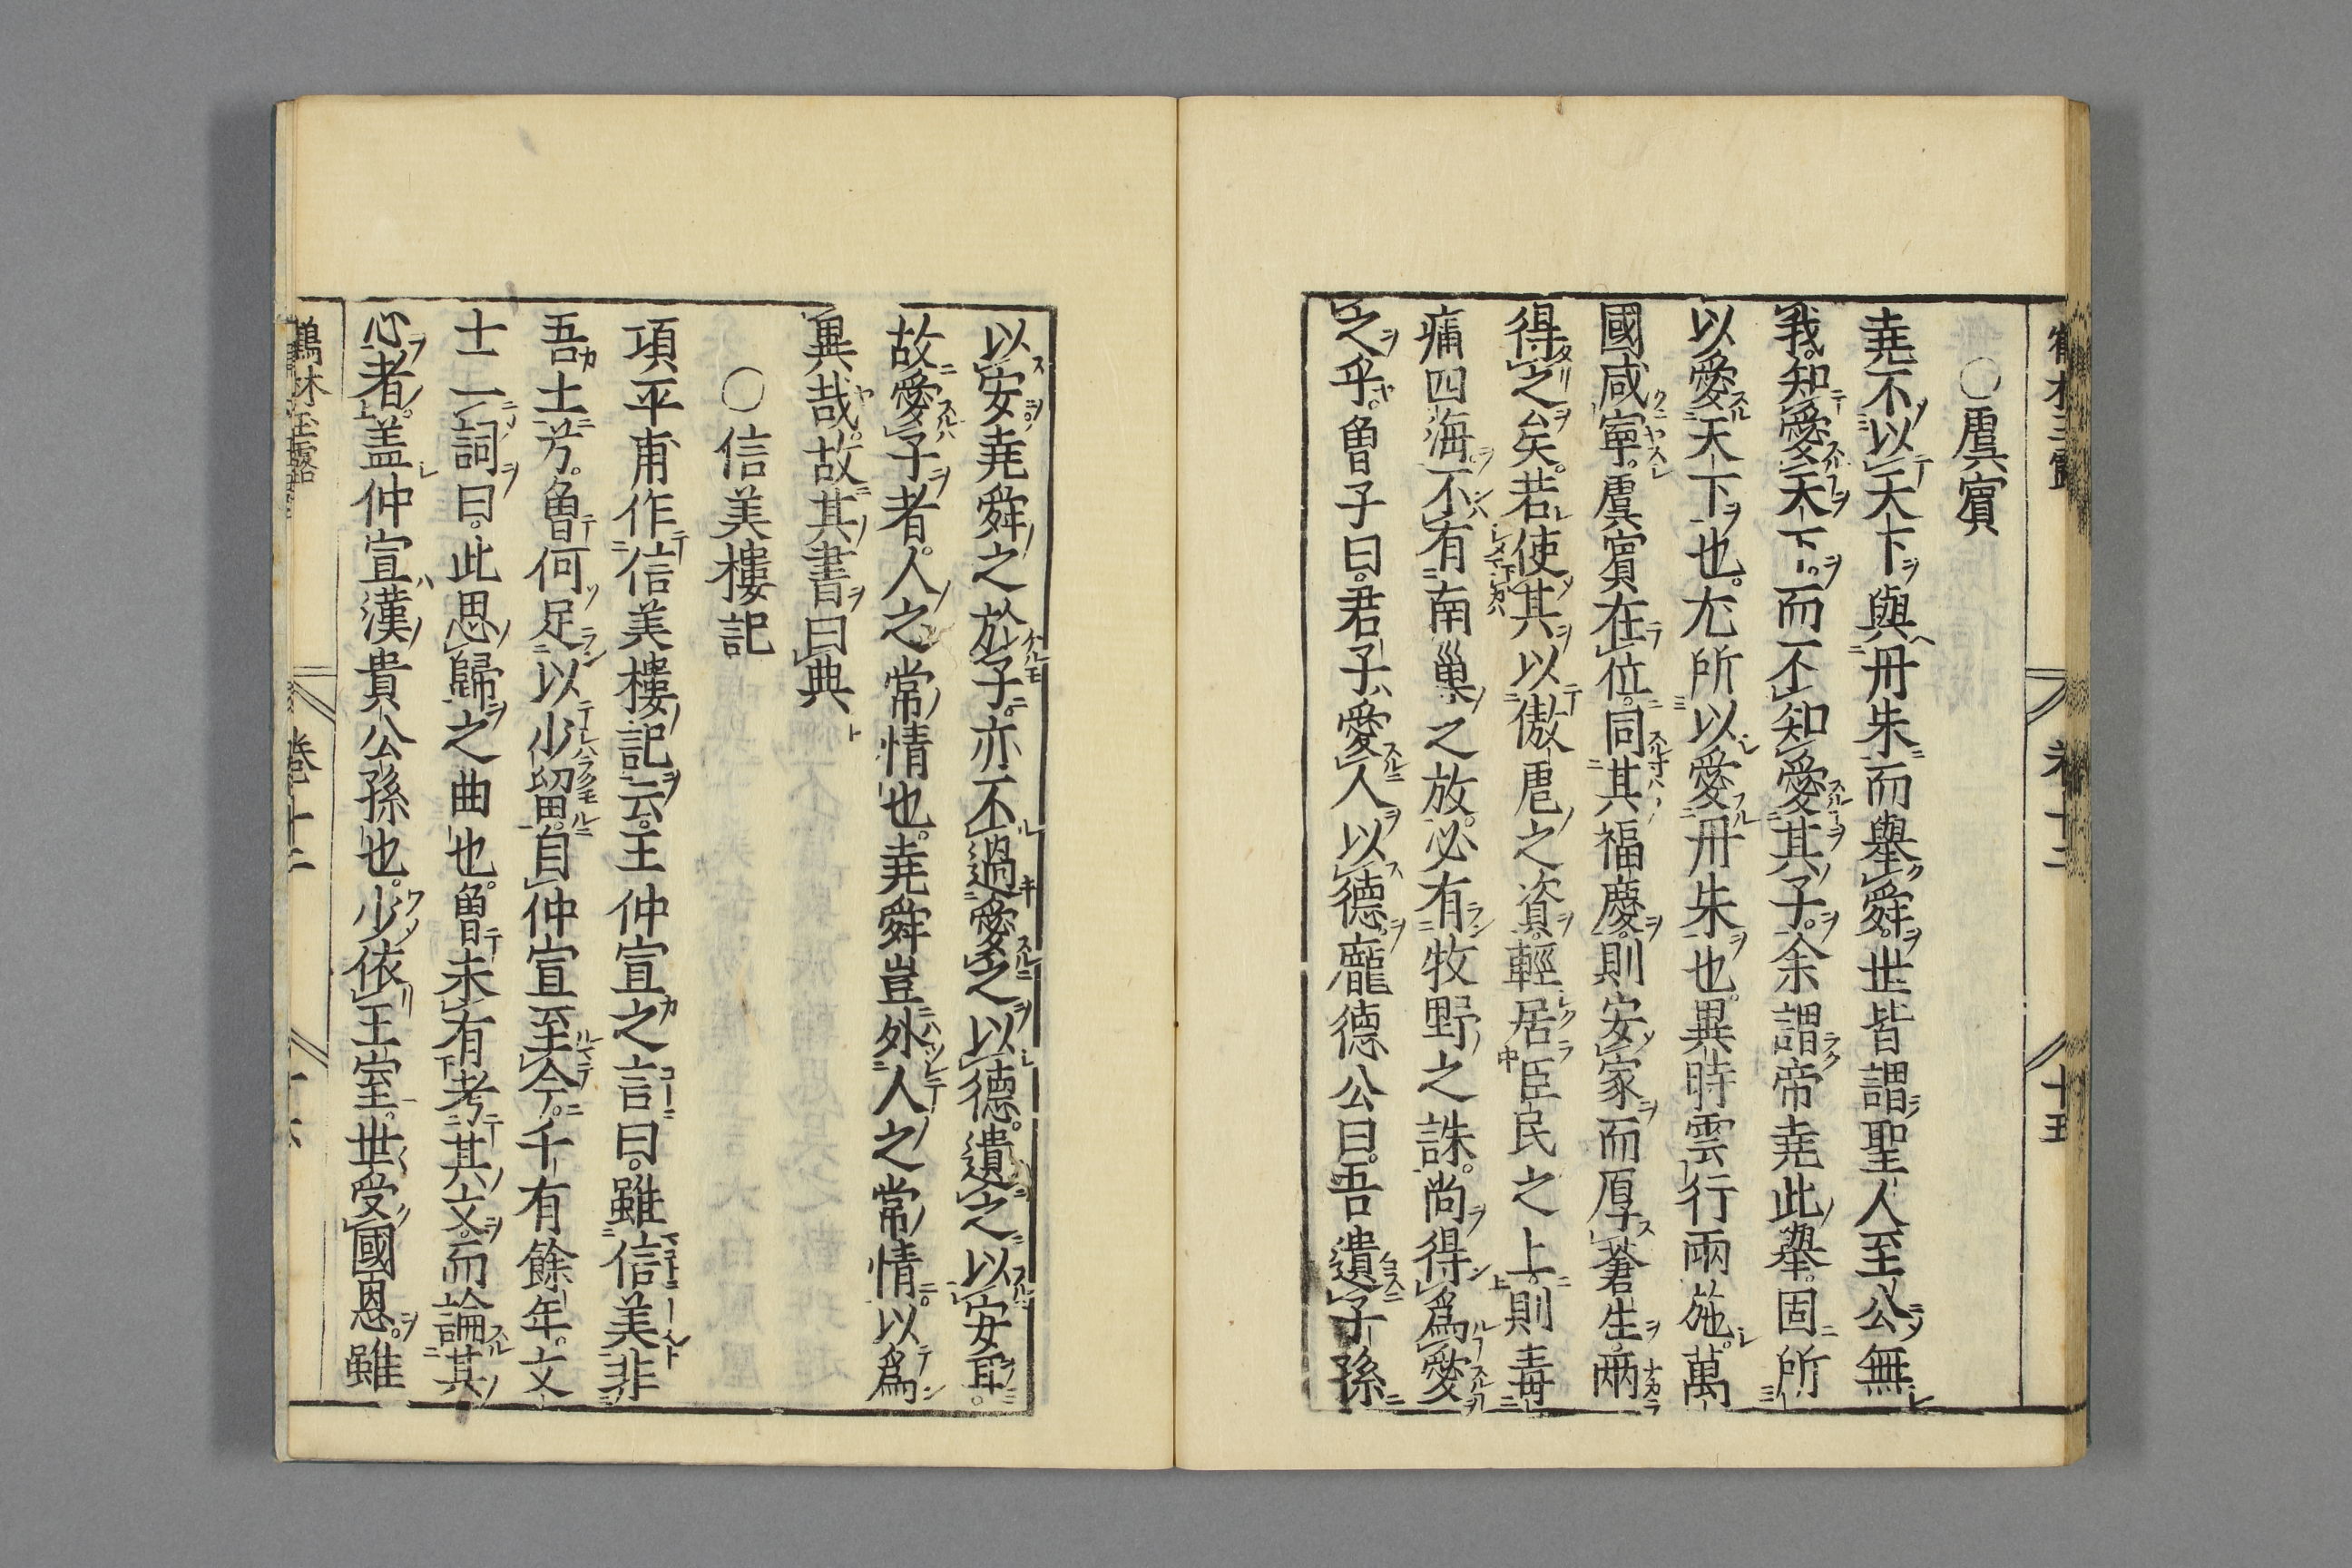 〇虞賓
堯不以天下與丹朱而舉舜世皆謂聖人至公無
我知愛天下而不知愛其子余謂帝堯此舉固所
以愛天下也尤所以愛丹朱也異時雲行雨施萬
國咸寧虞賓在位同其福慶則安家而厚蒼生兩
得之矣若使其以傲虐之資輕居臣民之上則毒
痡四海不有南巢之放必有牧野之誅尚得爲愛
之乎魯子曰君子愛人以德龐德公曰吾遺子孫
以安堯舜之於子亦不過愛之以德遺之以安耳
故愛子者人之常情也堯舜豈外人之常情以爲
異哉故其書曰典
〇信美樓記
項平甫作信美樓記云王仲宣之言曰雖信美非
吾土兮魯何足以少留自仲宣至今千有餘年文
士一詞曰此思歸之曲也魯未有考其文而論其
心者盖仲宣漢貴公孫也少依王室世受國恩雖
鶴林玉露 卷十二